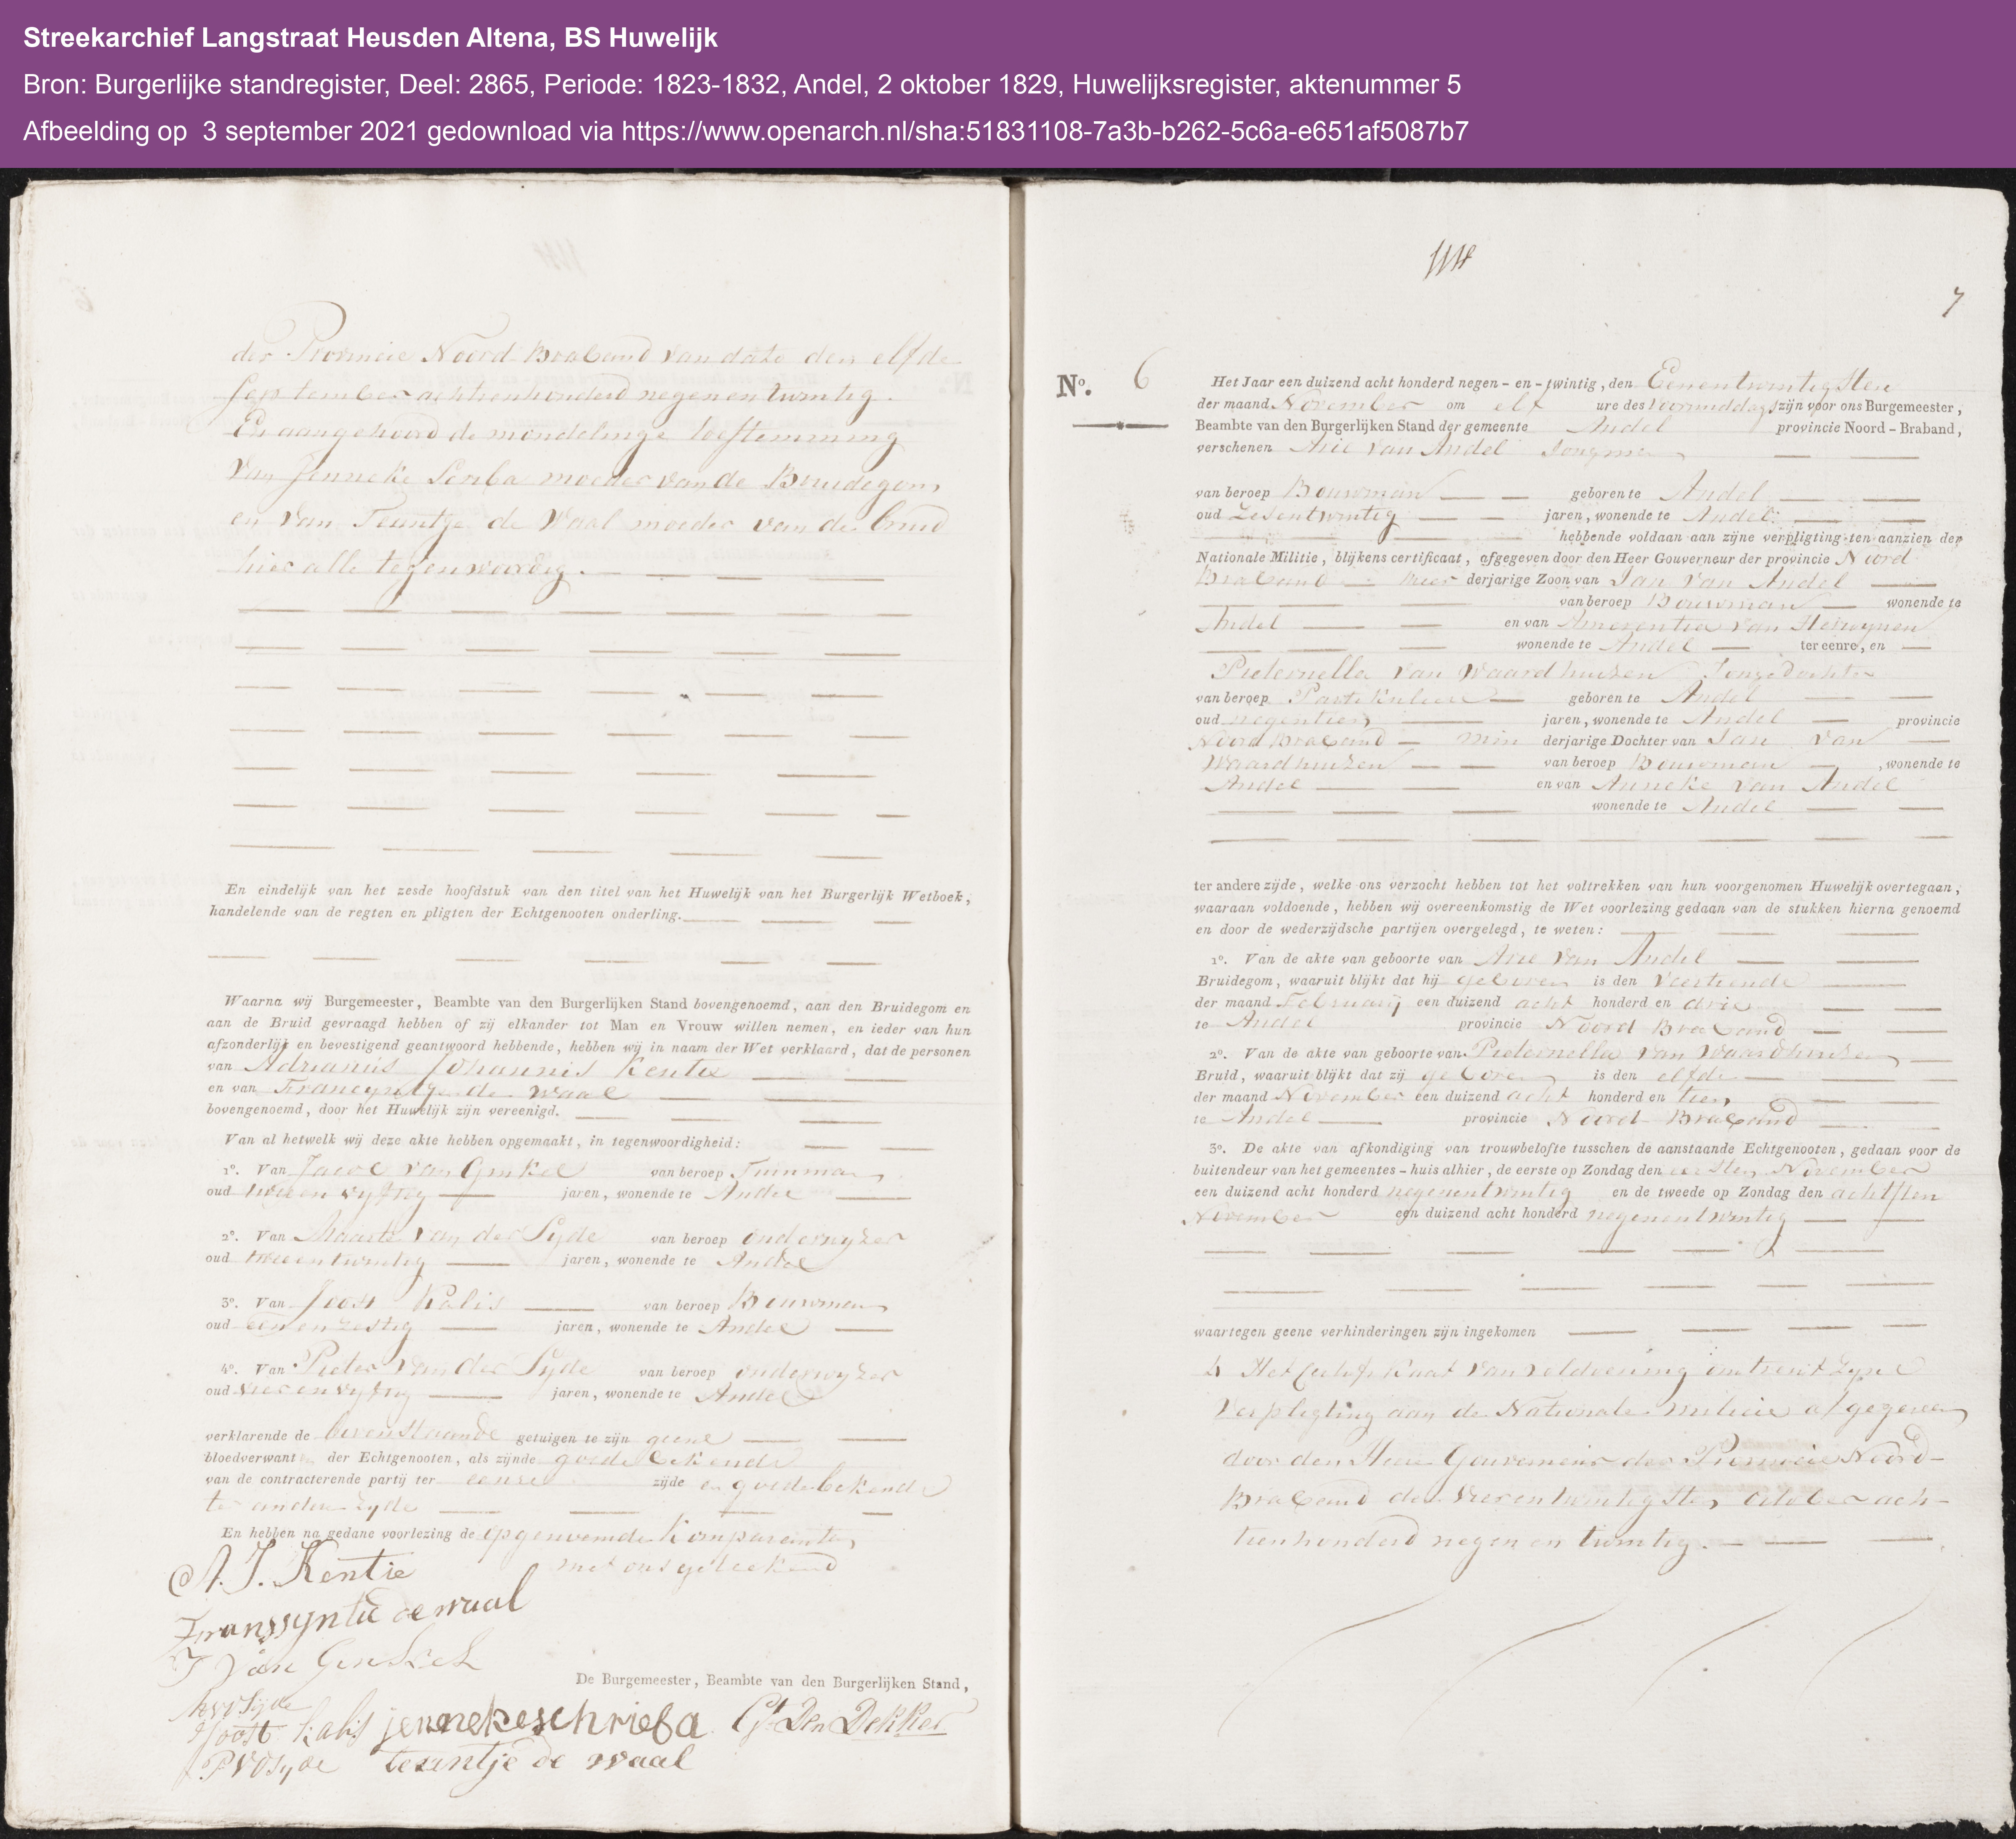 Streekarchief Langstraat Heusden Altena, BS Huwelijk
Bron: Burgerlijke standregister, Deel: 2865, Periode: 1823-1832, Andel, 2 oktober 1829, Huwelijksregister, aktenummer 5
Afbeelding op 3 september 2021 gedownload via https://www.openarch.nl/sha:51831108-7a3b-b262-5c6a-e651af5087b7
der Provincie Noord Braband van dato den elfde
September achtienhonderd negenentwintig.
En aangehoord de mondelinge toestemming
van Jenneke Scriba moeder van de Bruidegom
en van Teuntje de Waal moeder van de bruid
hier alle tegenwoordig.
En eindelijk van het zesde hoofdstuk van den titel van het Huwelijk van het Burgerlijk Wetboek,
handelende van de regten en pligten der Echtgenooten onderling.
Waarna wij Burgemeester, Beambte van den Burgerlijken Stand bovengenoemd, aan den Bruidegom en
aan de Bruid gevraagd hebben of zij elkander tot Man en Vrouw willen nemen, en ieder van hun
afzonderlijk en bevestigend geantwoord hebbende, hebben wij in naam der Wet verklaard, dat de personen
van Adrianus Johannis Kentie
en van Francyntje de Waal
bovengenoemd, door het Huwelijk zijn vereenigd.
Van al hetwelk wij deze akte hebben opgemaakt, in tegenwoordigheid:
1o. Van Jacob van Genkel van beroep Tuinman
oud tweeenvyftig jaren, wonende te Andel
2o. Van Maarte van der Syde van beroep onderwyzer
oud tweeentwintig jaren, wonende te Andel
3o. Van Joost Kalis van beroep Bouwman
oud eenenzestig jaren, wonende te Andel
4o. Van Pieter van der Syde van beroep onderwyzer
oud vierenvyftig jaren, wonende te Andel
verklarende de bovenstaande getuigen te zijn geene
bloedverwant der Echtgenooten, als zijnde goede bekende
van de contracterende partij ter eenre zijde en goede bekende
ter andere zyde
En hebben na gedane voorlezing de opgenoemde komparanten
met ons geteekend
A. J. Kentie
Franssyntie de waal
J van Genkel
De Burgemeester, Beambte van den Burgerlijken Stand,
MvdSyde
Joost kalis jennekeschrieba Gt Den Dekker
PVDSyde teuntje de waal
7
No. 6
Het Jaar een duizend acht honderd negen-en-twintig, den Eenentwintigsten
der maand November om elf ure des voormiddags zijn voor ons Burgemeester,
Beambte van den Burgerlijken Stand der gemeente Andel provincie Noord-Braband,
verschenen Arie van Andel Jongman
van beroep Bouwman geboren te Andel
oud Zesentwintig jaren, wonende te Andel
hebbende voldaan aan zijne verpligting ten aanzien der
Nationale Militie, blijkens certificaat, afgegeven door den Heer Gouverneur der provincie Noord
Braband meer derjarige Zoon van Jan van Andel
van beroep Bouwman wonende te
Andel en van Amerentia van Herwynen
wonende te Andel ter eenre, en
Pieternella van Waardhuizen Jongedochter
van beroep Partikulier geboren te Andel
oud negentien jaren, wonende te Andel provincie
Noord Braband min derjarige Dochter van Jan van
Waardhuizen van beroep Bouwman, wonende te
Andel en van Anneke van Andel
wonende te Andel
ter andere zijde, welke ons verzocht hebben tot het voltrekken van hun voorgenomen Huwelijk overtegaan,
waaraan voldoende, hebben wij overeenkomstig de Wet voorlezing gedaan van de stukken hierna genoemd
en door de wederzijdsche partijen overgelegd, te weten:
1o. Van de akte van geboorte van Arie van Andel
Bruidegom, waaruit blijkt dat hij geboren is den veertiende
der maand February een duizend acht honderd en drie
te Andel provincie Noord Braband
2o. Van de akte van geboorte van Pieternella van Waardhuizen
Bruid, waaruit blijkt dat zij geboren is den elfde
der maand November een duizend acht honderd en tien
te Andel provincie Noord Braband
3o. De akte van afkondiging van trouwbelofte tusschen de aanstaande Echtgenooten, gedaan voor de
buitendeur van het gemeentes-huis alhier, de eerste op Zondag den eersten November
een duizend acht honderd negenentwintig en de tweede op Zondag den achtsten
November een duizend acht honderd negenentwintig
waartegen geene verhinderingen zijn ingekomen
4 Het Certifikaat van voldoening omtrent zyne
Verpligting aan de Nationale militie afgegeven
door den Heer Gouverneur der Provincie Noord-
Braband den vierentwintigsten October ach-
tienhonderd negen en twintig.